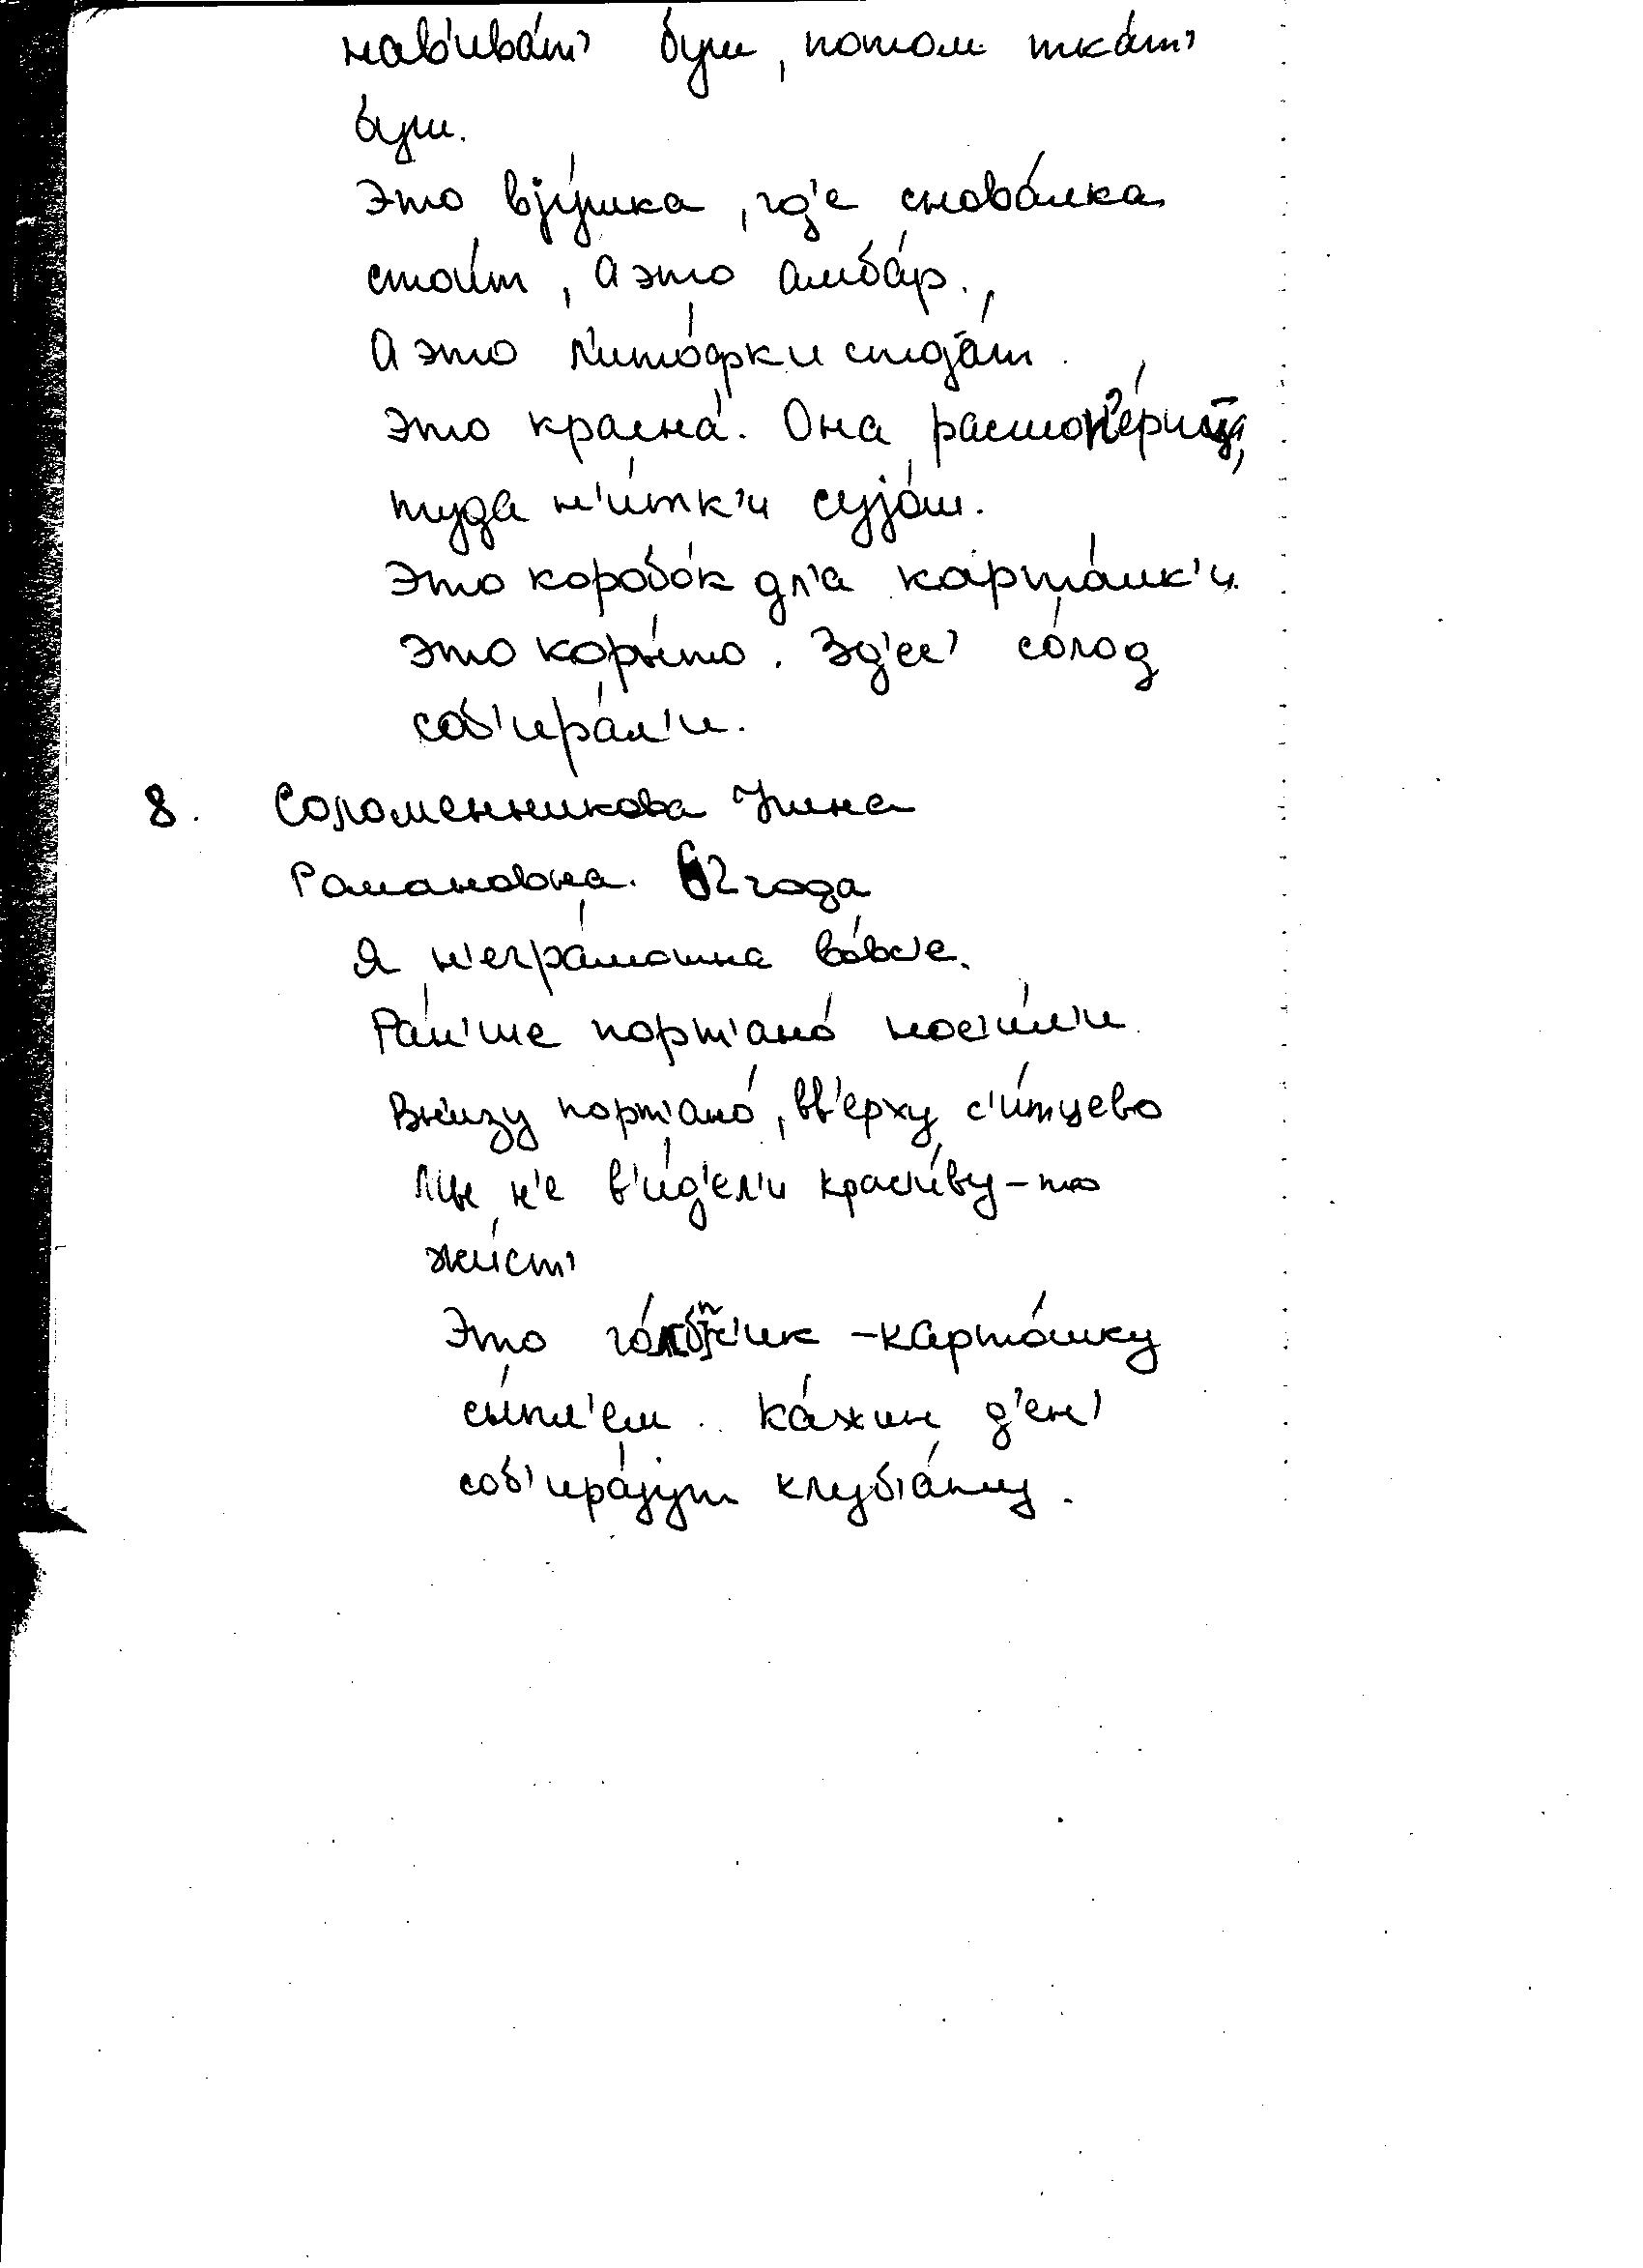 нав'ива́т' бум, потом тка́т'
бум.
Это вjу́шка, гд'е снова́лка
стои́т, а это амба́р.
А это л'ито́фки стоjа́т.
Это красна́. Она растоп'е́рица,
туда н'и́тк'и суjо́ш.
Это коробо́к дл'а карто́шк'и.
Это коры́то. Зд'ес' со́лод
соб'ира́л'и.
8. Соломенникова Нина
Романовна. 62 года
Я н'егра́мотна во́вс'е.
Ра́н'ше порт'ано́ нос'и́л'и.
Вн'изу порт'ано́, вв'ерху с'и́тцево
Мы н'е в'и́д'ел'и крас'и́ву-то
жи́ст'
Это -карто́шку
сы́пл'ем. ка́жин д'ен'
соб'ира́jут клуб'а́нку.